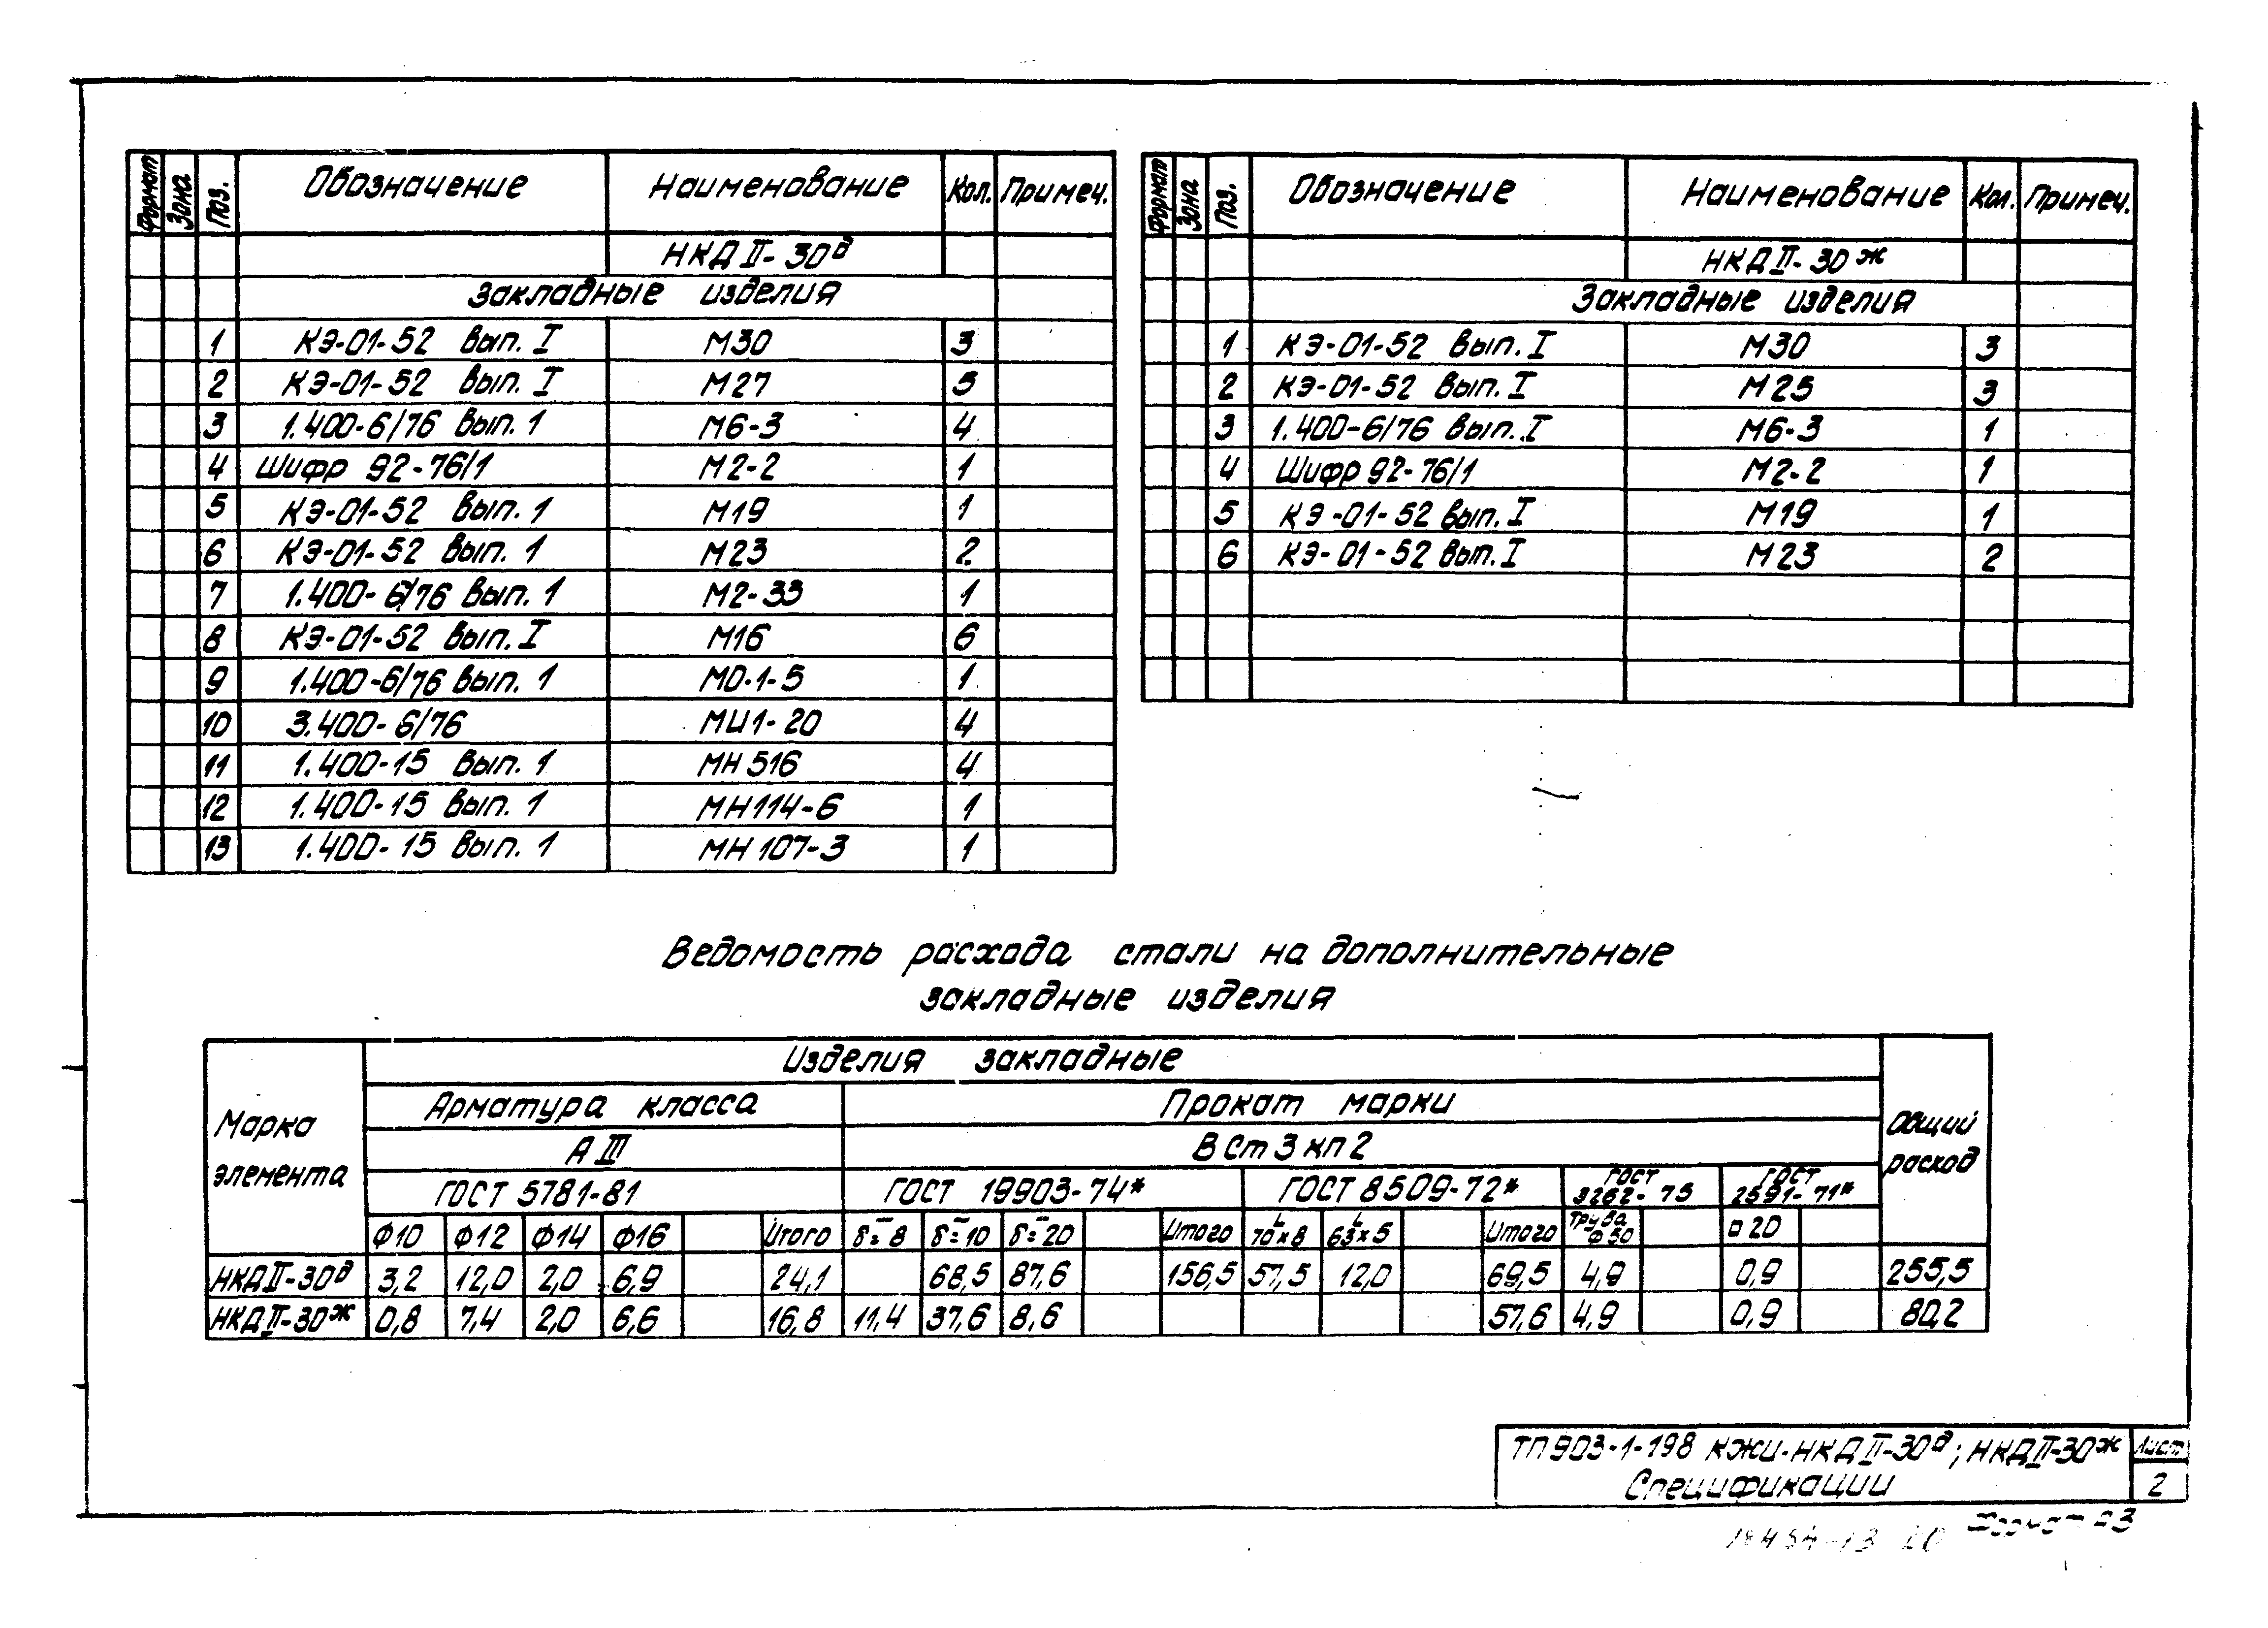 Формат Зона Поз. Обозначение Наименование Кол. Примеч.
НКД II-30д
Закладные изделия
1 КЭ-01-52 Вып. I М30 3
2 КЭ-01-52 Вып. I М27 3
3 1.400-6/76 Вып. 1 М6-3 4
4 Шифр 92-76/1 М2-2 1
5 КЭ-01-52 Вып. 1 М19 1
6 КЭ-01-52 Вып. 1 М23 2
7 1.400-6/76 Вып. 1 М2-33 1
8 КЭ-01-52 Вып. I М16 6
9 1.400-6/76 Вып. 1 МО-1-5 1
10 3.400-6/76 МИ1-20 4
11 1.400-15 Вып. 1 МН516 4
12 1.400-15 Вып. 1 МН114-6 1
13 1.400-15 Вып. 1 МН107-3 1
Формат Зона Поз. Обозначение Наименование Кол. Примеч.
НКД II-30ж
Закладные изделия
1 КЭ-01-52 Вып. I М30 3
2 КЭ-01-52 Вып. I М25 3
3 1.400-6/76 Вып. I М6-3 1
4 Шифр 92-76/1 М2-2 1
5 КЭ-01-52 Вып. I М19 1
6 КЭ-01-52 Вып. I М23 2
Ведомость расхода стали на дополнительные
закладные изделия
Марка элемента Изделия закладные Общий расход
Арматура класса Прокат марки
А III ВСт3кп2
ГОСТ 5781-81 ГОСТ 19903-74* ГОСТ 8509-72* ГОСТ 3262-75 ГОСТ 2591-71*
Ф10 Ф12 Ф14 Ф16 Итого δ=8 δ=10 δ=20 Итого 70×8 63×5 Итого Труба Ф50 □20
НКДII-30д 3,2 12,0 2,0 6,9 24,1 68,5 87,6 156,5 57,5 12,0 69,5 4,9 0,9 255,5
НКДII-30ж 0,8 7,4 2,0 6,6 16,8 11,4 37,6 8,6 57,6 4,9 0,9 80,2
ТП903-1-198 КЖИ-НКДII-30д; НКДII-30ж Лист
Спецификации 2
Формат А3